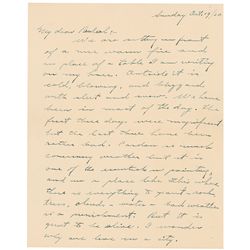 Sunday Oct. 19/20
My dear Beulah:-
We are sitting in front
of a nice warm fire and
in place of a table I am writing
on my knee. Outside it is
cold, blowing, and blizzard
with sleet and snow. We have
been in most of the day. The
first three days were magnificent
but the last three have been
rather bad. Pardon so much
concerning weather but it is
one of the essentials in painting
and in a place like this where
there is everything to paint - rocks,
trees, clouds + water - bad weather
is a punishment. But it is
great to be alive. I wonder
why we live in a city.